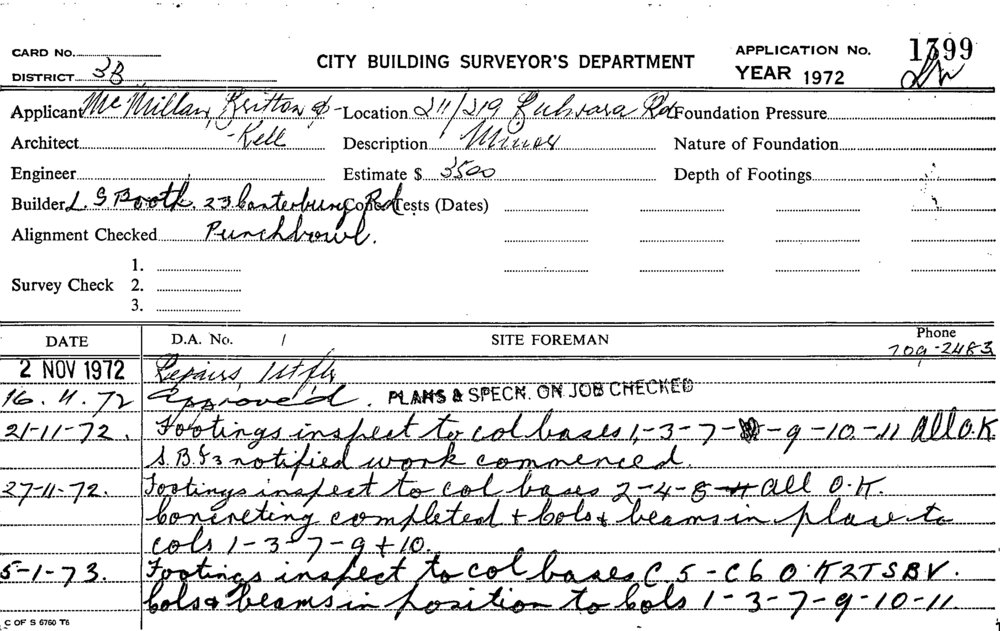 CARD No.
DISTRICT 3B
CITY BUILDING SURVEYOR'S DEPARTMENT
APPLICATION No. 1399
YEAR 1972
Applicant McMillan, Britton & Kell
Location 211/219 Rd
Foundation Pressure
Architect
Description Minor
Nature of Foundation
Engineer
Estimate $ 3500
Depth of Footings
Builder L. S Booth. 23 Canterbury Rd Punchbowl.
Tests (Dates)
Alignment Checked
Survey Check
1.
2.
3.
DATE
D.A. No. /
SITE FOREMAN
Phone
709-2483
2 NOV 1972 Repairs, 1st flr
16.11.72 Approved. PLANS & SPECN. ON JOB CHECKED
21-11-72. Footings inspect to col bases 1,-3-7- -9-10-11 All O.K
notified work commenced.
27-11-72. Footings inspect to col bases 2-4-8 all O.K.
Concreting completed + Cols & beams in place to
cols 1-3-7-9+10.
5-1-73. Footings inspect to col bases C5-C6 O.K
Cols & beams in position to Cols 1-3-7-9-10-11.
C OF S 6760 T6